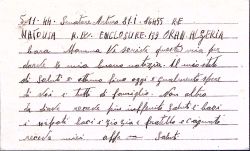 5-11-44- Senatore Antonio S.I. 16495 RE
N.RY. ENCLOSURE-131 ORAN ALGERIA
Cara Mamma Vi scrivo questa mia per
darvi le mie buone notizie. Il mio stato
di Salute è ottimo fino oggi e ugualmente spero
di voi e tutti di famiglia. Non altro
da dirvi ricevete più infiniti Saluti e baci
i nipoti baci e fratello e cognato
ricevete miei aff Saluti